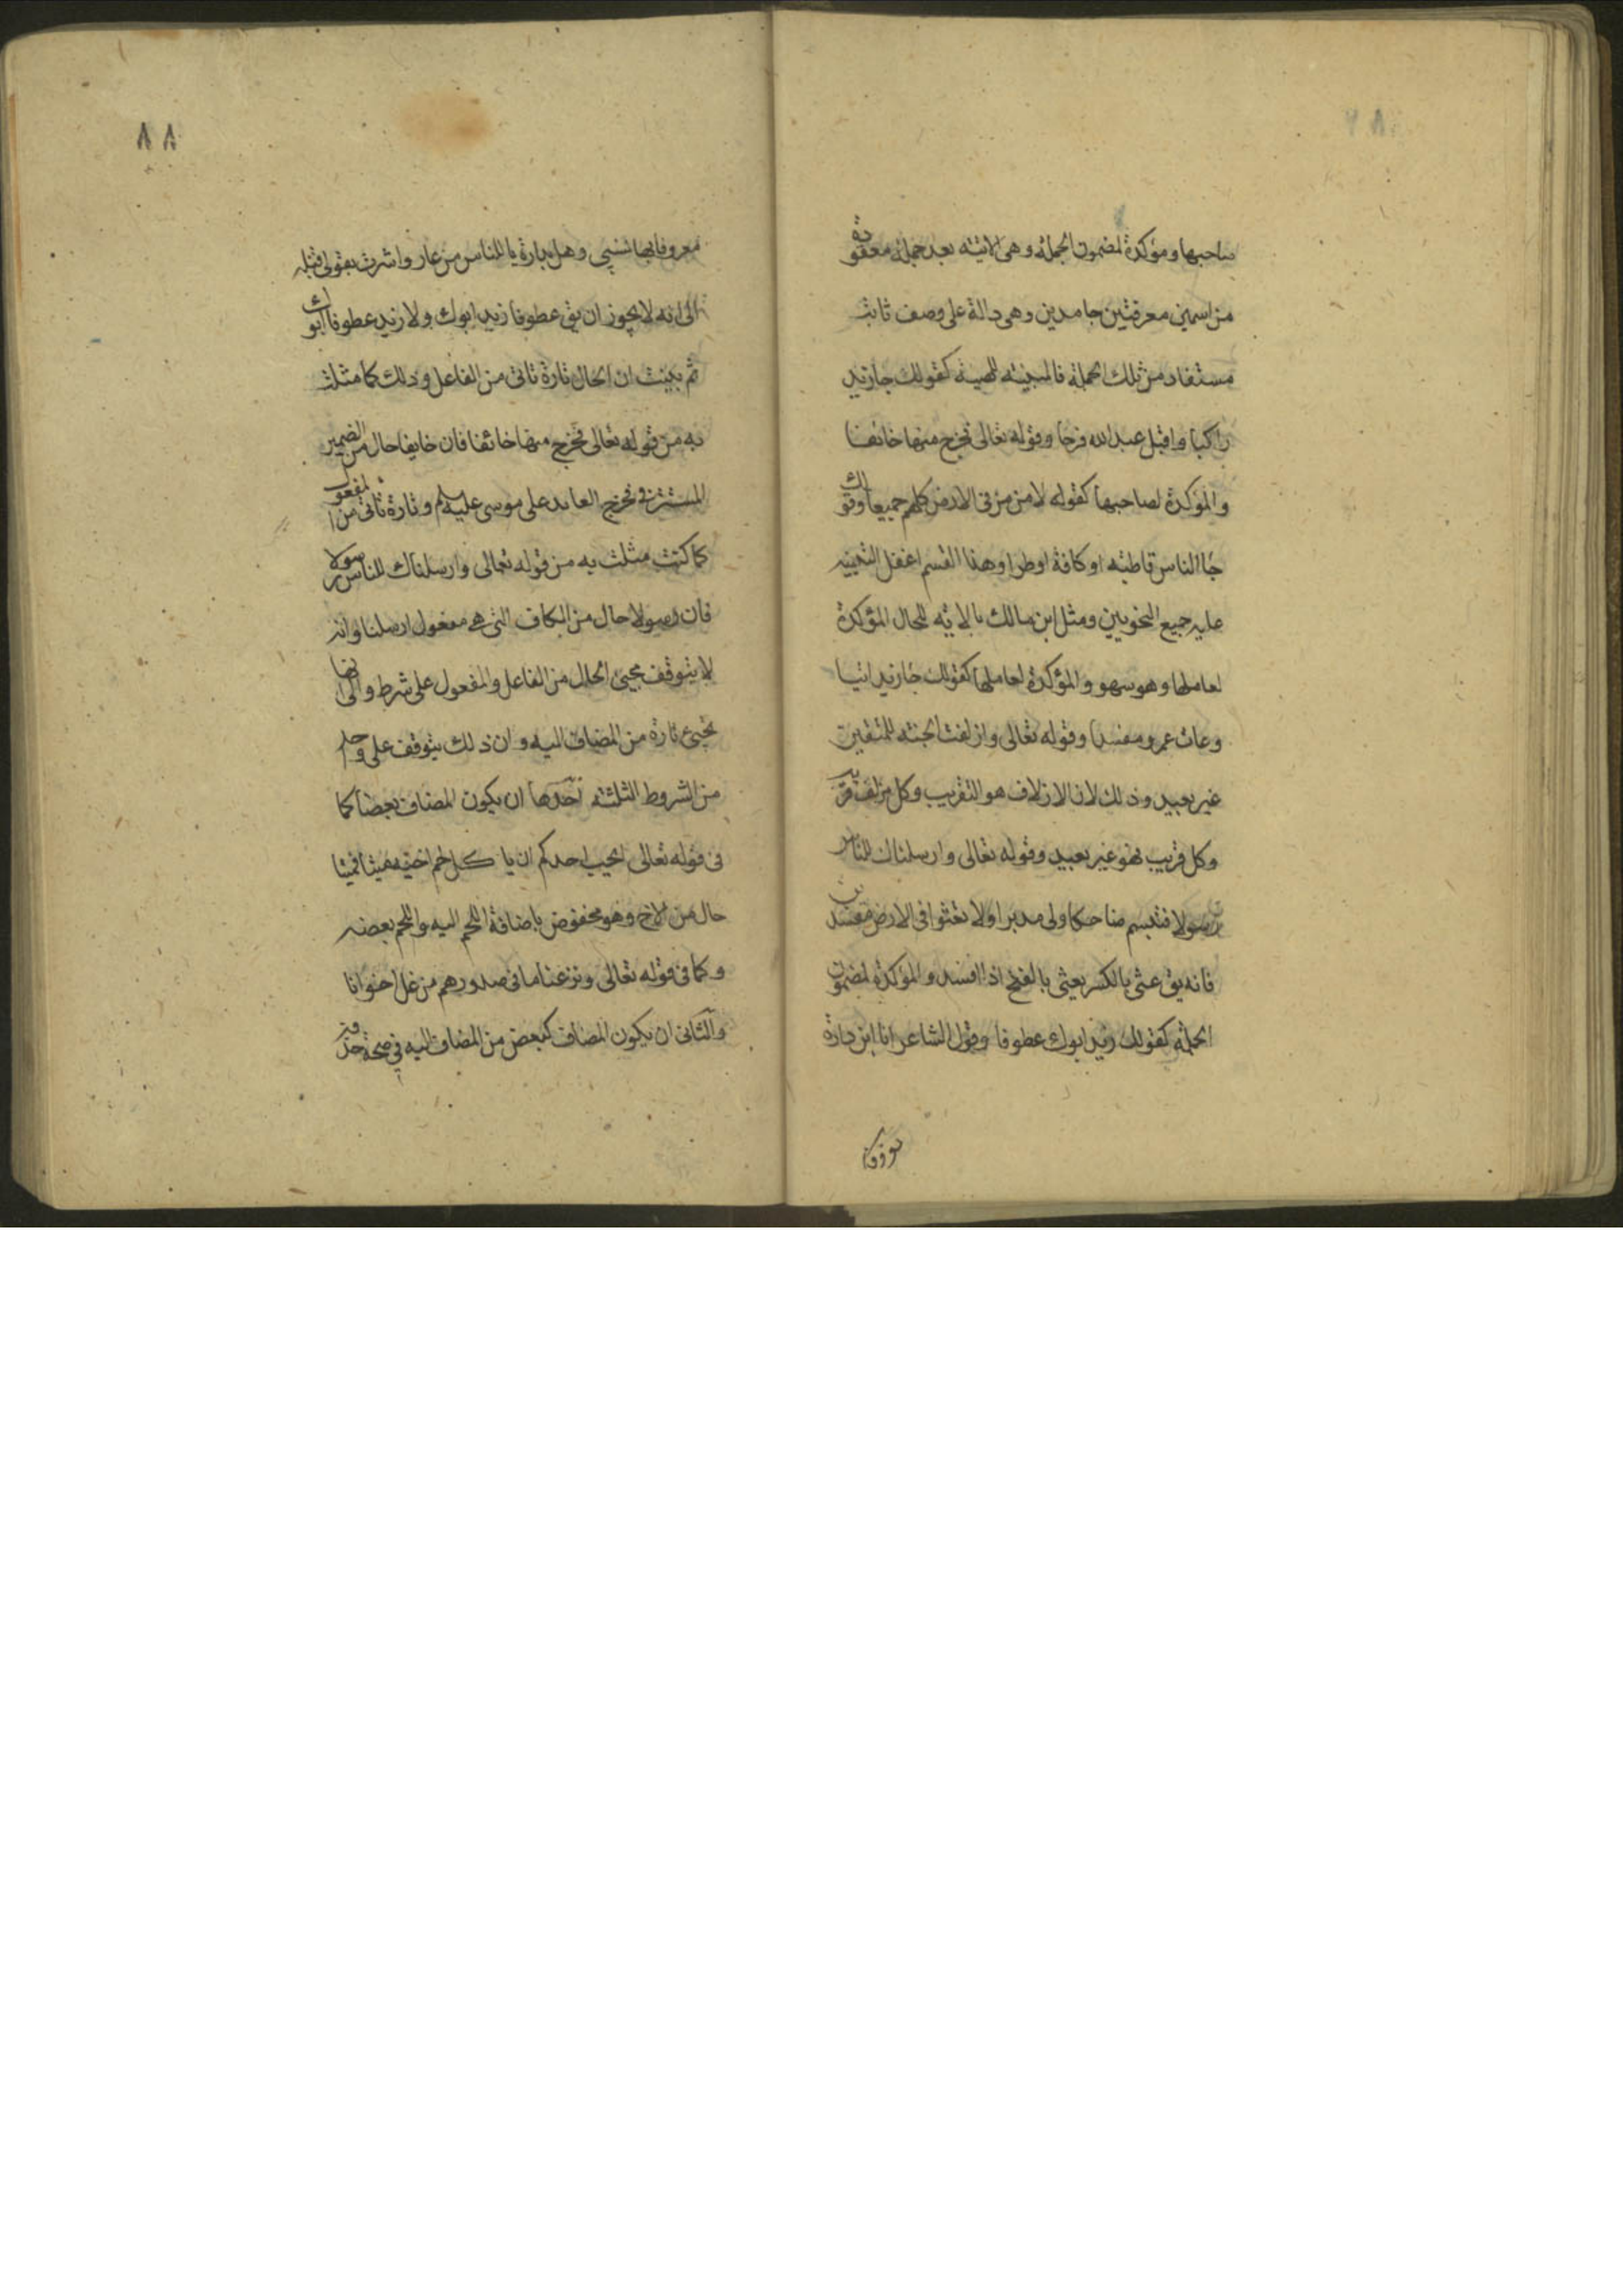 صاحبها ومؤكدة لمضمون الجملة وهى الآتية بعد جملة معقودة
من اسمين معرفتين جامدين وهى دالة على وصف ثابت
مستفاد من تلك الجملة فالمبينة للهيئة كقولك جا زيد
راكبا واقبل عبد الله فرحا وقوله تعالى فخرج منها خائفا
والمؤكدة لصاحبها كقوله لامن من فى الارض كلهم جميعا وقولك
جاا الناس قاطبة او كافة او طرا وهذا القسم اغفل التنبيه
عليه جميع النحويين ومثل ابن مالك بالاية للحال المؤكدة
لعاملها وهو سهو والمؤكدة لعاملها كقولك جا زيد اتيا
وعاث عمرو مفسدا وقوله تعالى وازلفت الجنة للمتقين
غير بعيد وذلك لان الازلاف هو التقريب وكل مزلف قريب
وكل قريب فهو غير بعيد وقوله تعالى وارسلناك للناس
رسولا فتبسم ضاحكا ولى مدبرا ولا تعثوا فى الارض مفسدين
فانه يق عثى بالكسر يعثى بالفتح اذا افسد والمؤكدة لمضمون
الجملة كقولك زيد ابوك عطوفا وقول الشاعر انا ابن دارة
٨٨
معروفا بها نسبى وهل بدارة يا للناس من عار واشرت بقولى قبله
الى انه لا يجوز ان يق عطوفا زيد ابوك ولا زيد عطوفا ابوك
ثم بينت ان الحال تارة تاتى من الفاعل وذلك كما مثلت
به من قوله تعالى فخرج منها خائفا فان خايفا حال من الضمير
المستتر فى فخرج العايد على موسى عليه سلم وتارة تاتى من المفعول
كما كنت مثلت به من قوله تعالى وارسلناك للناس رسولا
فان رسولا حال من الكاف التى هى مفعول ارسلنا وانه
لا يتوقف مجيئ الحال من الفاعل والمفعول على شرط والى انها
تجيئ تارة من المضاف اليه وان ذلك يتوقف على واحد
من الشروط الثلثة احدها ان يكون المضاف بعضا كما
فى قوله تعالى ايحب احدكم ان ياكل لحم اخيه ميتا فميتا
حال من الاخ وهو مخفوض باضافة اللحم اليه واللحم بعضه
وكما فى قوله تعالى ونزعنا ما فى صدورهم من غل اخوانا
والثانى ان يكون المضاف كبعض من المضاف اليه فى صحة حذفه